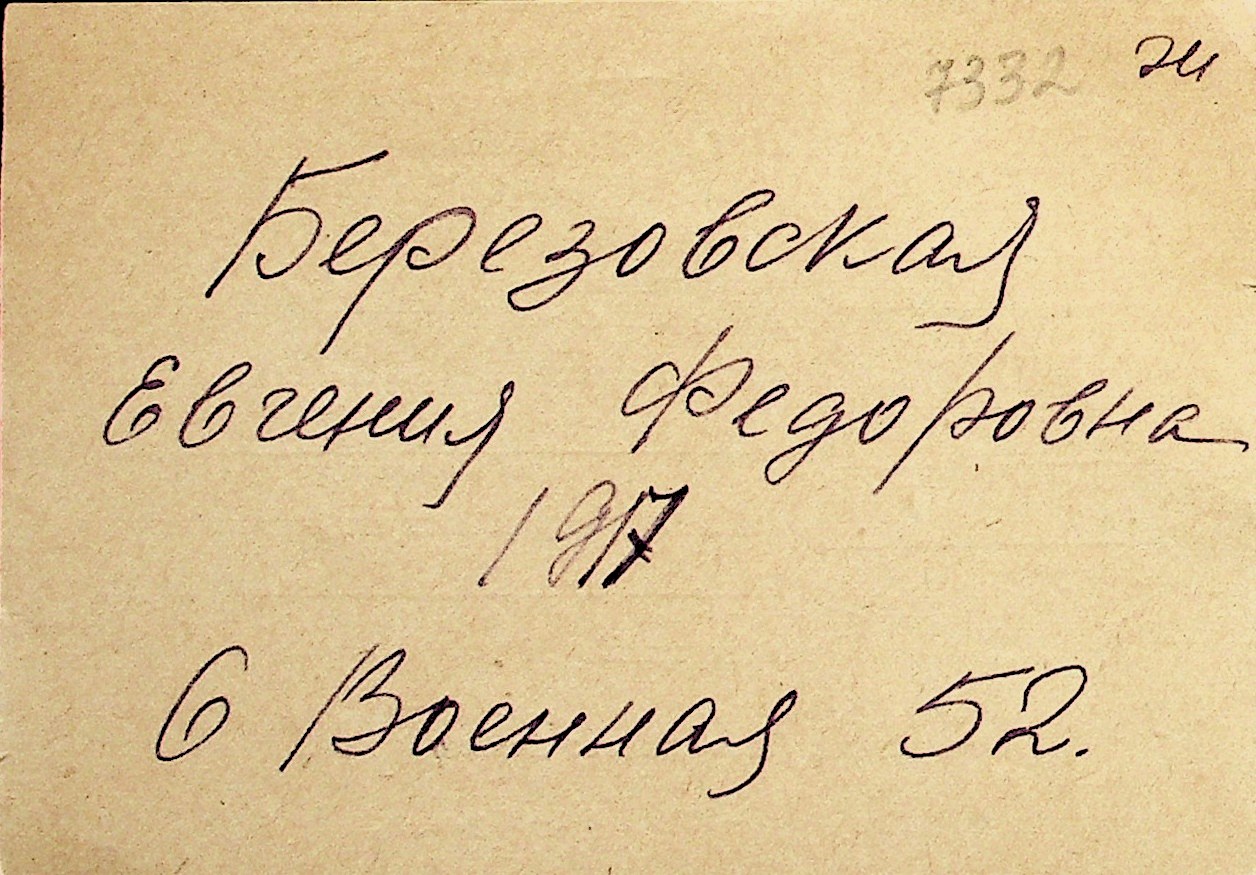 7332
Березовская
Евгения Федоровна
1917
6 Военная 52.